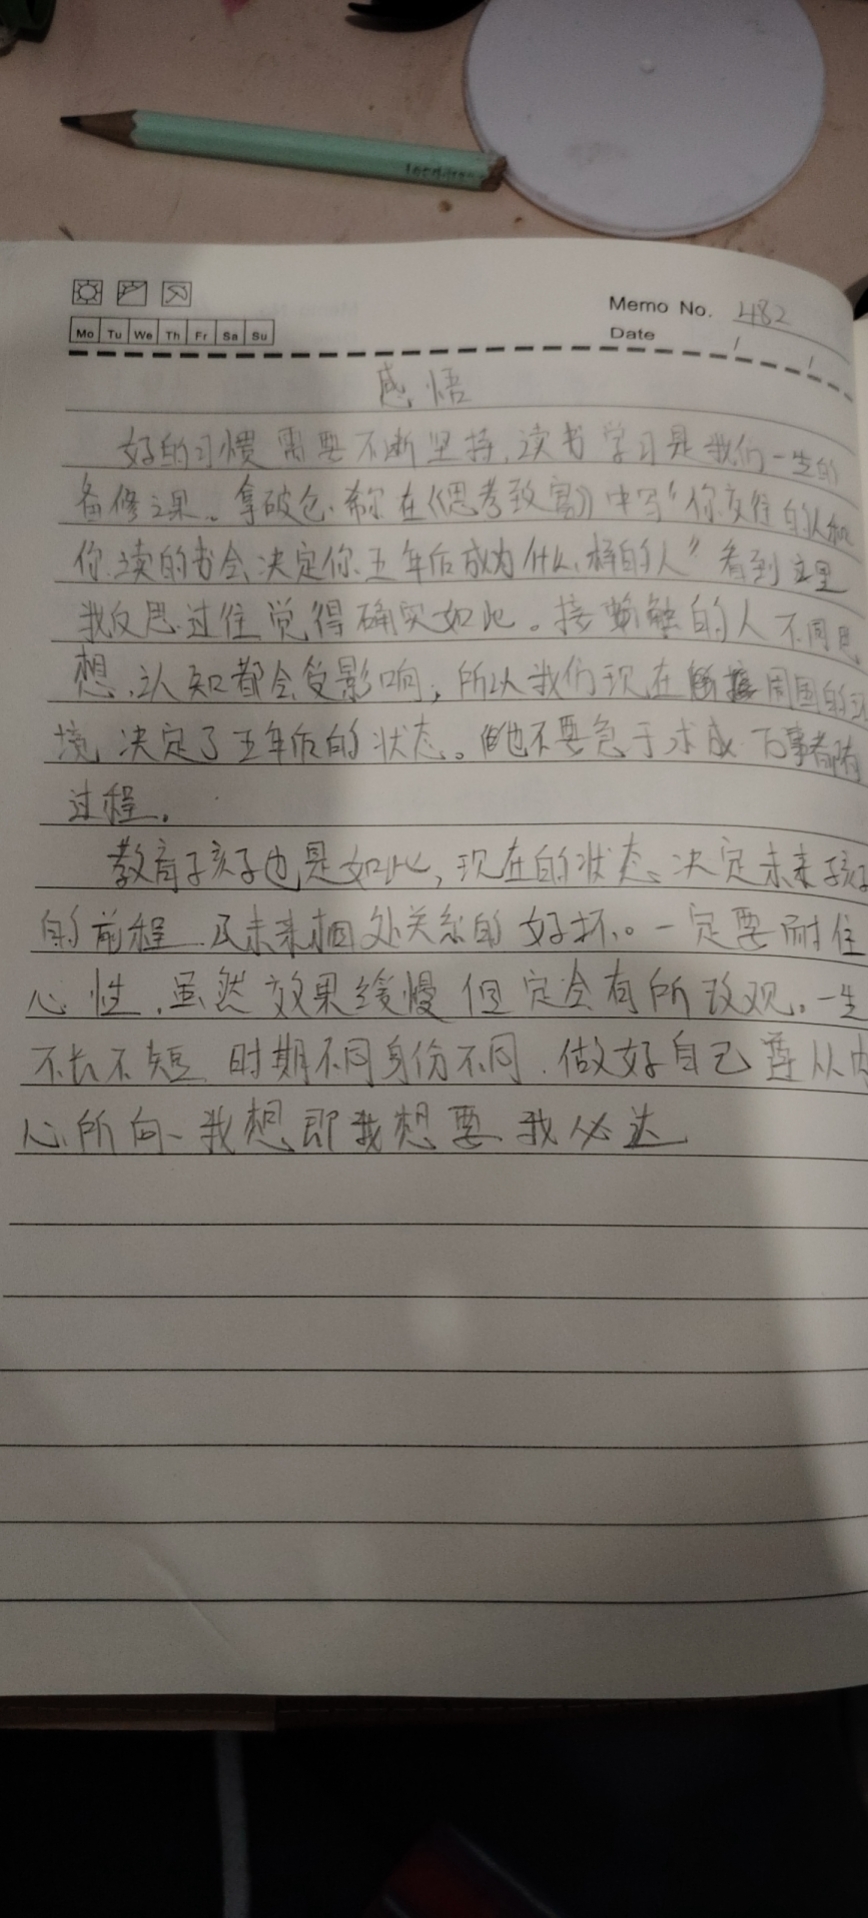 Memo No. 482
Mo Tu We Th Fr Sa Su
Date / /
感悟
好的习惯需要不断坚持,读书学习是我们一生的
备修之课。拿破仑·希尔在《思考致富》中写“你交往的人和
你读的书会决定你五年后成为什么样的人”看到这里
我反思过往觉得确实如此。接触的人不同思
想、认知都会受影响,所以我们现在周围的环
境决定了五年后的状态。但也不要急于求成 万事都有
过程。
教育孩子也是如此,现在的状态决定未来孩子
的前程 及未来相处关系的好坏。一定要耐住
心性,虽然效果缓慢但定会有所改观。一生
不长不短 时期不同身份不同.做好自己 遵从内
心所向、我想即我想要 我必达